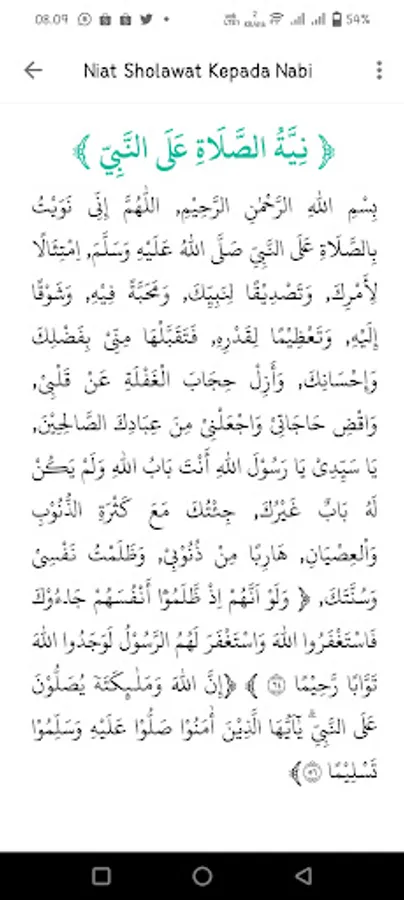 08.09
54%
Niat Sholawat Kepada Nabi
﴿ نِيَّةُ الصَّلَاةِ عَلَى النَّبِيِّ ﴾
بِسْمِ اللهِ الرَّحْمٰنِ الرَّحِيْمِ, اللّٰهُمَّ إِنِّى نَوَيْتُ
بِالصَّلَاةِ عَلَى النَّبِيِّ صَلَّى اللهُ عَلَيْهِ وَسَلَّمَ, اِمْتِثَالًا
لِأَمْرِكَ, وَتَصْدِيْقًا لِنَبِيِّكَ, وَمَحَبَّةً فِيْهِ, وَشَوْقًا
إِلَيْهِ, وَتَعْظِيْمًا لِقَدْرِهِ, فَتَقَبَّلْهَا مِنِّيْ بِفَضْلِكَ
وَإِحْسَانِكَ, وَأَزِلْ حِجَابَ الْغَفْلَةِ عَنْ قَلْبِيْ,
وَاقْضِ حَاجَاتِيْ وَاجْعَلْنِيْ مِنَ عِبَادِكَ الصَّالِحِيْنَ,
يَا سَيِّدِىْ يَا رَسُوْلَ اللهِ أَنْتَ بَابُ اللهِ وَلَمْ يَكُنْ
لَهُ بَابٌ غَيْرُكَ, جِئْتُكَ مَعَ كَثْرَةِ الذُّنُوْبِ
وَالْعِصْيَانِ, هَارِبًا مِنْ ذُنُوْبِيْ, وَظَلَمْتُ نَفْسِىْ
وَسُنَّتَكَ, ﴿ وَلَوْ اَنَّهُمْ اِذْ ظَّلَمُوْٓا أَنْفُسَهُمْ جَاۤءُوْكَ
فَاسْتَغْفَرُوا اللهَ وَاسْتَغْفَرَ لَهُمُ الرَّسُوْلُ لَوَجَدُوا اللهَ
تَوَّابًا رَّحِيْمًا ۝٦٤ ﴾ ﴿إِنَّ اللهَ وَمَلٰۤىِٕكَتَهٗ يُصَلُّوْنَ
عَلَى النَّبِيِّۗ يٰٓاَيُّهَا الَّذِيْنَ اٰمَنُوْا صَلُّوْا عَلَيْهِ وَسَلِّمُوْا
تَسْلِيْمًا ۝٥٦﴾